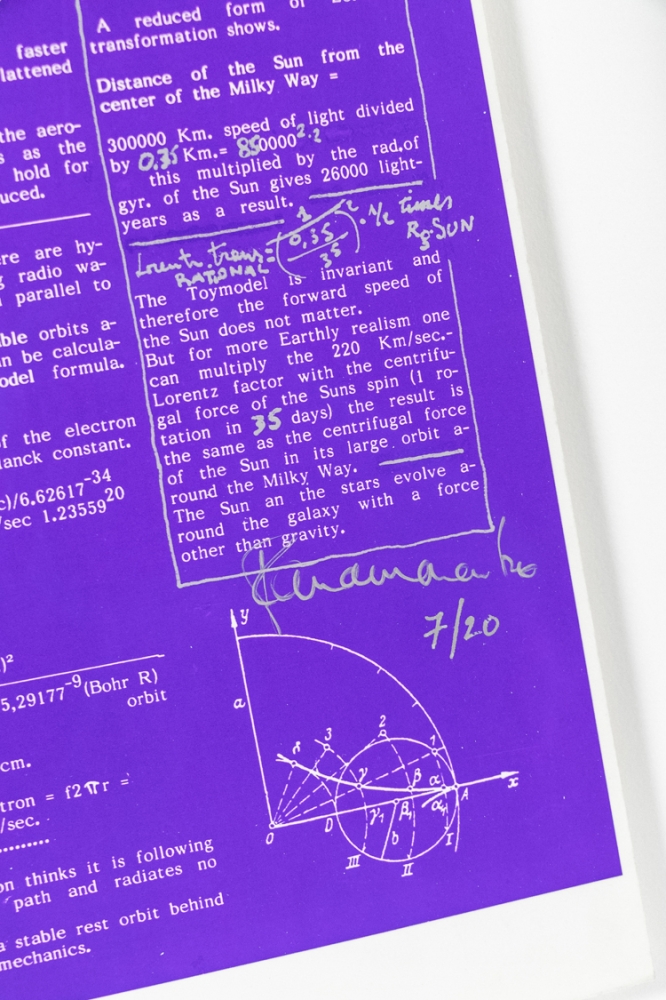 faster
lattened
the aero-
s as the
hold for
uced.
ere are hy-
g radio wa-
parallel to
ble orbits a-
n be calcula-
odel formula.
f the electron
lanck constant.
c)/6.62617-34
/sec 1.23559 20
)²
5,29177-9(Bohr R)
orbit
cm.
tron = f2πr =
/sec.
on thinks it is following
path and radiates no
a stable rest orbit behind
mechanics.
A reduced form of
transformation shows.
Distance of the Sun from the
center of the Milky Way =
300000 Km. speed of light divided
by 0.35 Km.= 850000 2.2
this multiplied by the rad.of
gyr. of the Sun gives 26000 light-
years as a result.
Lorentz trans = (1/0,35/35)² · ½ times
RATIONAL
R₀ SUN
The Toymodel is invariant and
therefore the forward speed of
the Sun does not matter.
But for more Earthly realism one
can multiply the 220 Km/sec.-
Lorentz factor with the centrifu-
gal force of the Suns spin (1 ro-
tation in 35 days) the result is
the same as the centrifugal force
of the Sun in its large orbit a-
round the Milky Way.
The Sun an the stars evolve a-
round the galaxy with a force
other than gravity.
7/20
y
a
3
2
1
γ
β
α
A
x
O
D
γ₁
β₁
α₁
b
I
II
III